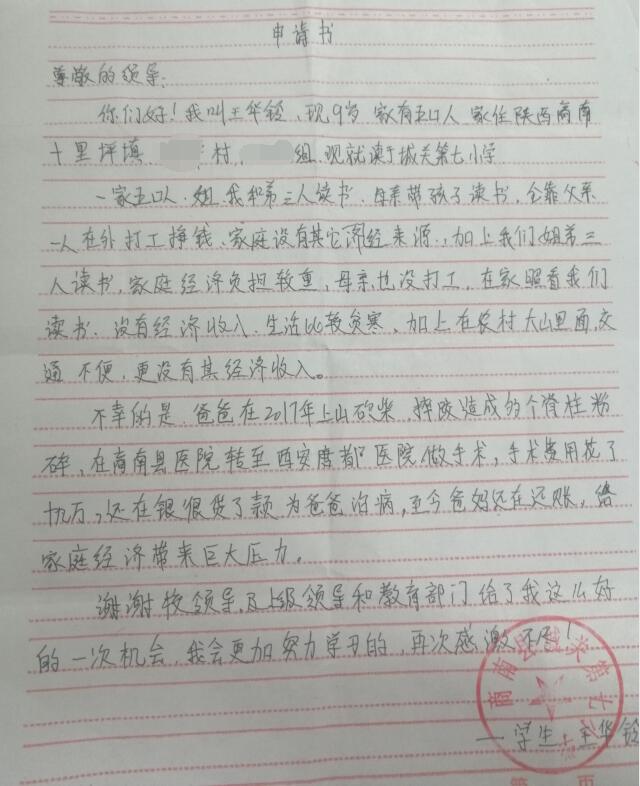 申请书
尊敬的领导:
你们好!我叫王华铃、现9岁 家有五口人 家住陕西商南
十里坪镇 村, 组.现就读于城关第七小学
一家五口人.姐.我和弟三人读书.母亲带孩子读书.全靠父亲
一人在外打工挣钱、家庭没有其它经来源.,加上我们姐弟三
人读书,家庭经济负担较重,母亲也没打工,在家照看我们
读书.没有经济收入.生活比较贫寒、加上在农村大山里面,交
通不便.更没有其经济收入。
不幸的是.爸爸在2017年上山砍柴.摔跤造成的个脊柱粉
碎、在商南县医院转至西安唐都医院做手术,手术费用花了
万,还在银很贷了款为爸爸治病,至今爸妈还在还账,给
家庭经济带来巨大压力。
谢谢校领导.及上级领导和教育部门给了我这么好
的一次机会.我会更加努力学习的,再次感激不尽!
一学生:王华铃
商南县城关第七小
第 页